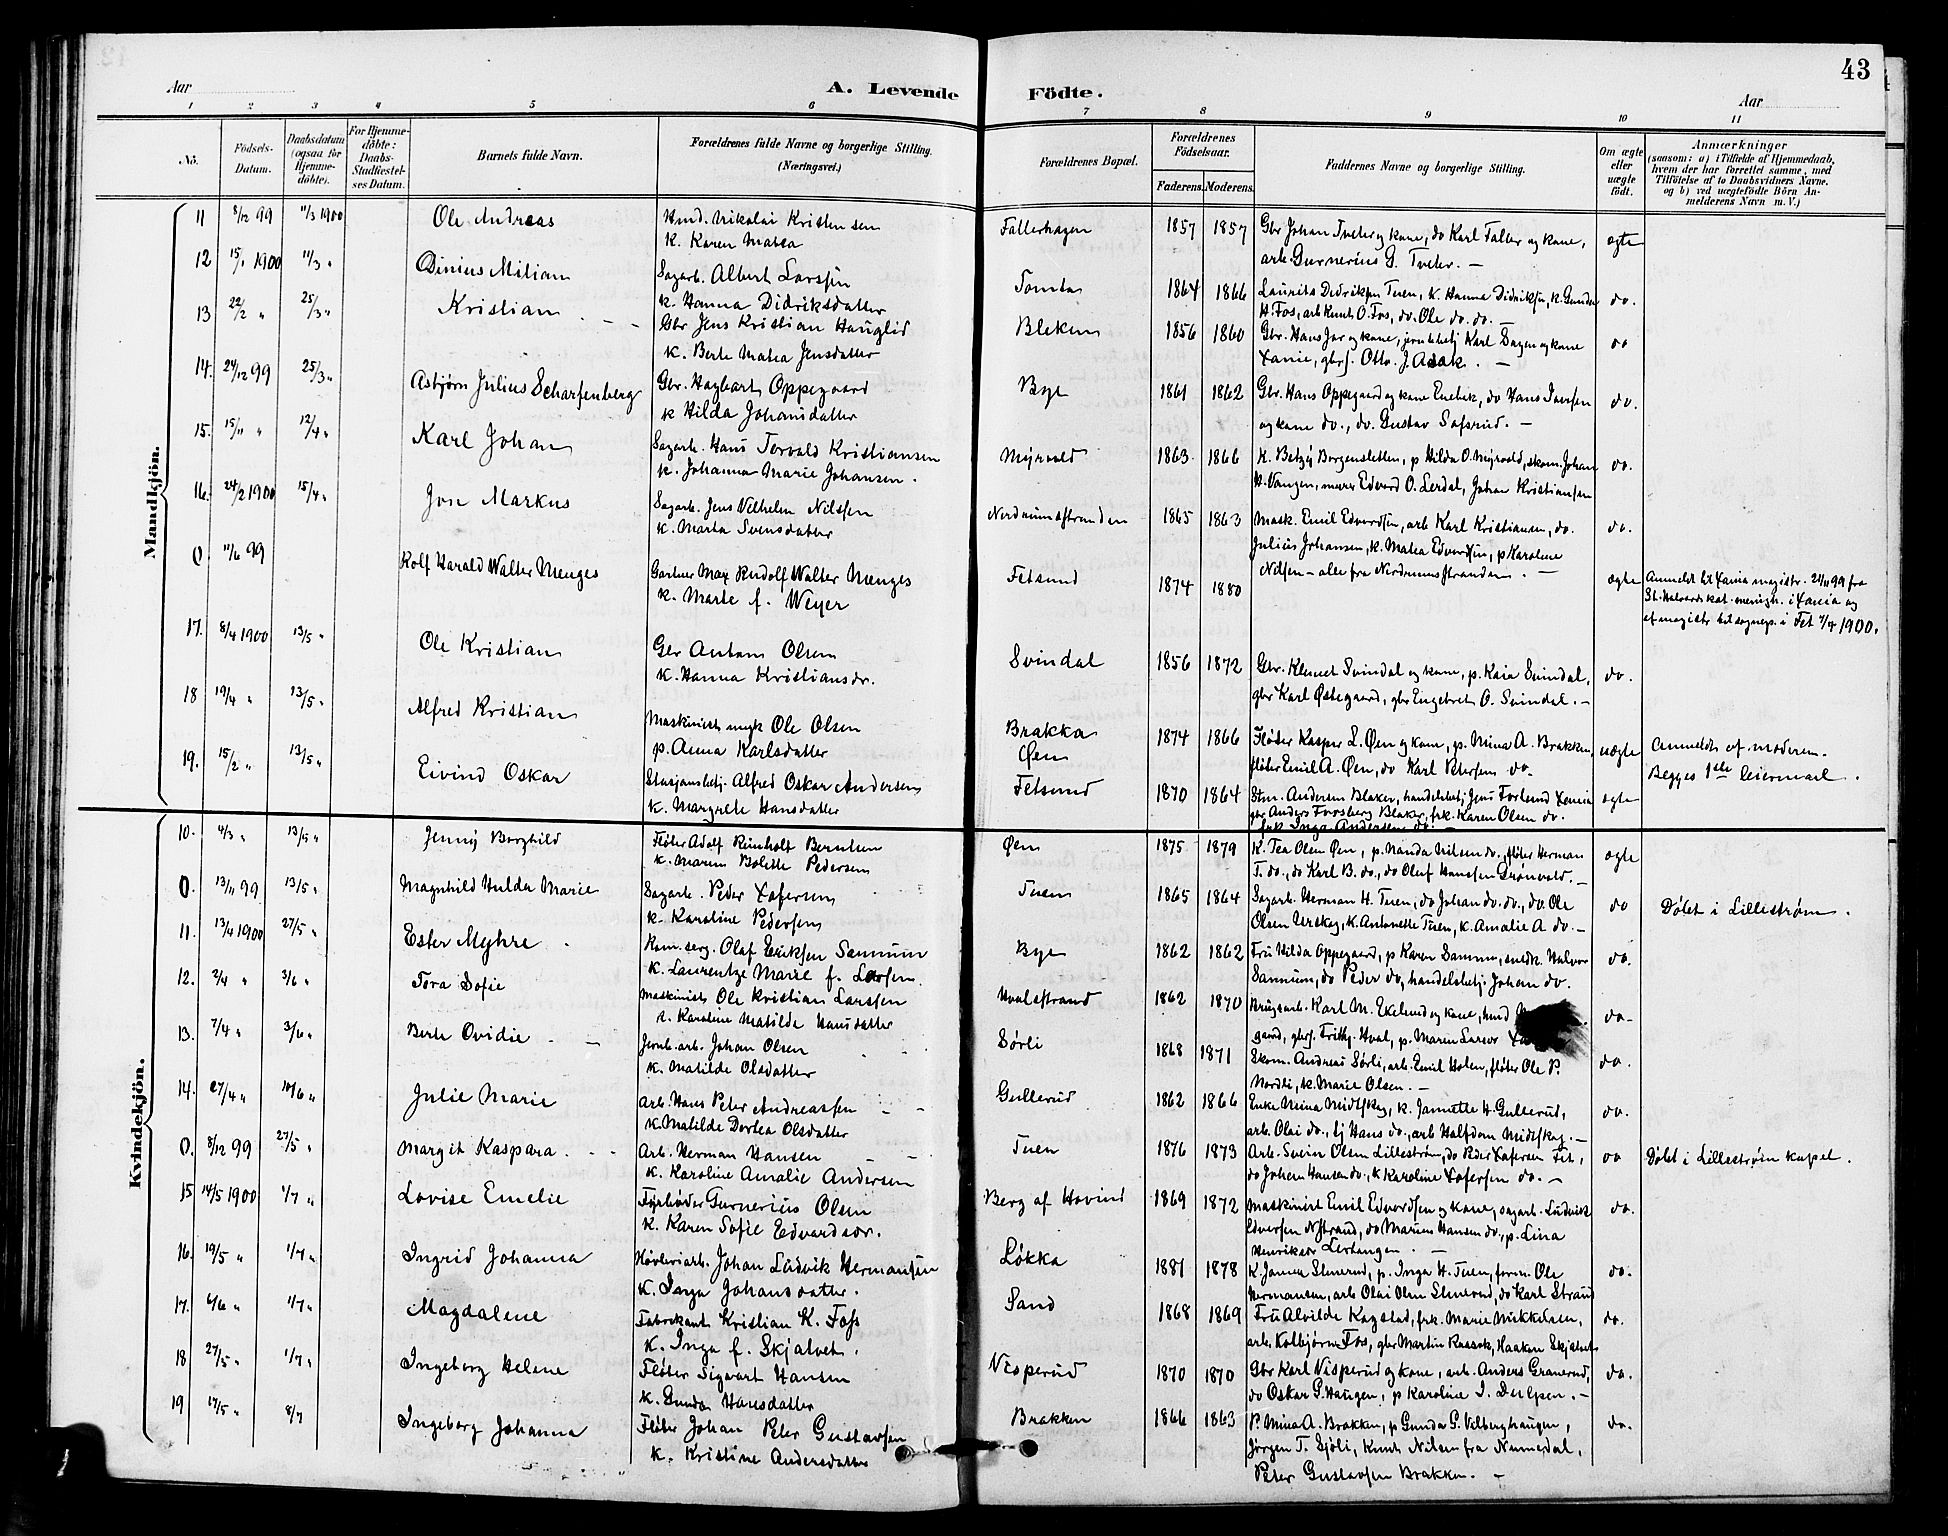 43
Aar
A. Levende Födte.
Aar
1 2 3 4 5 6 7 8 9 10 11
No.
Födsels-Datum.
Daabsdatum (ogsaa for Hjemme-döbte).
For Hjemme-döbte: Daabs-Stadfæstel-ses Datum.
Barnets fulde Navn.
Forældrenes fulde Navne og borgerlige Stilling. (Næringsvei.)
Forældrenes Bopæl.
Forældrenes Födselsaar.
Faderens. Moderens.
Faddernes Navne og borgerlige Stilling.
Om ægte eller uægte födt.
Anmærkninger (saasom: a) i Tilfælde af Hjemmedaab, hvem der har forrettet samme, med Tilföielse af to Daabsvidners Navne, og b) ved uægtefödte Börn An-melderens Navn m. V.)
Mandkjön.
11 8/12 99 11/3 1900 Ole Andreas
Nikolai Kristensen
k. Karen Matea
Fallerhagen 1857 1857
Gbr Johan Tveter og kone, do Karl Faller og kone,
arb. Gunerius G. Tveter. —
ægte
12 15/1 1900 11/3 „ Dinius Miliam
Sagarb. Albert Larssen
k. Hanna Didriksdatter
Tomta 1864 1866
Laurits Didriksen Tuen, k. Hanna Didriksen, k. Gunda
H. Fos, arb Knut O. Fos, do. Ole do. do. —
do.
13 22/2 „ 25/3 „ Kristian
Gbr Jens Kristian Hauglid
k. Berte Matea Jensdatter
Bleken 1856 1860
Gbr. Hans Jar og kone, Karl Dagen og kone
Xania, gbrs. Otto. J. Asak. —
do
14. 24/12 99 25/3 „ Asbjørn Julius Scharfenberg
Gbr. Hagbart Oppegaard
k Hilda Johansdatter
Bye 1861 1862
Gbr. Hans Oppegaard og kone Enebak, do Hans Iversen
og kone do., do. Gustav Sofsrud. —
do.
15. 15/11 „ 12/4 „ Karl Johan
Sagarb. Hans Torvald Kristiansen
k. Johanna Marie Johansen.
Myrvold 1863 1866
K. Betzy Borgensletten, p Hilda O. Myrvold, skom. Johan
H. Vangen, murer Edvard O. Lerdal, Johan Kristiansen
do.
16. 24/2 1900 15/4 „ Jon Markus
Sagarb. Jens Vilhelm Nilssen
k. Marta Svensdatter
Nordrumsstranden 1865 1863
Mask. Emil Edvardsen, arb Karl Kristiansen, do.
Julius Johansen, k. Matea Edvardsen, p Karoline
Nilsen — alle fra Nordrumsstranden. —
do.
0 11/6 99 Rolf Harald Walter Menges
Gartner Max Rudolf Walter Menges
k. Marte f. Weyer
Fetsund 1874 1880
ægte
Anmeldt til Xania magistr. 21/11 99 fra
St. Halvards kat. menigh. i Xania og
af magistr til sognep. i Fet 7/4 1900.
17. 8/4 1900 13/5 „ Ole Kristian
Gbr Antons Olsen
k. Hanna Kristiansdr.
Svindal 1856 1872
Gbr. Klemet Svindal og kone, p. Kaia Svindal,
gbr Karl Østegaard, gbr Engebret O. Svindal. —
do.
18 19/4 „ 13/5 „ Alfred Kristian
Maskinist ungk Ole Olsen
p. Anna Karlsdatter
Brakka
Øen
1874 1866
Fløter Kasper L. Øen og kone, p. Mina A. Brakken,
fløter Emil A. Øen, do Karl Petersen do.
uægte
Anmeldt af moderen.
Begges 1ste leiermaal.
19. 15/2 „ 13/5 „ Eivind Oskar
Stasjonsbetj. Alfred Oskar Andersen
k. Margrete Hansdatter
Fetsund 1870 1864
Stm. Andersen Blaker, handelsbetj Jens Forlund Xania
gbr Anders Forsberg Blaker, frk. Karen Olsen do.
frk Inga Andersen do. —
ægte
Kvindekjön.
10. 4/3 „ 13/5 „ Jenny Borghild
Fløter Adolf Reinholt Berntsen
k. Maren Bolette Pedersen
Øen 1875 1879
K. Tea Olsen Øen, p. Nanda Nilsen do., fløter Herman
T. do., do Karl B. do., do Oluf Hanssen Grønvold. —
ægte
0. 13/11 99 13/5 „ Magnhild Hulda Marie
Sagarb. Peder Xofersen
k. Karoline Pedersen
Tuen 1865 1864
Sagarb. Herman H. Tuen, do Johan do. do., do. Ole
Olsen Urskog, k. Antonette Tuen, k. Amalie A do. —
do
Døbt i Lillestrøm.
11. 13/4 1900 27/5 „ Ester Myhre
Kom. serg. Olaf Eriksen Sannum
k. Laurentze Marie f. Larsen.
Bye 1862 1862
Fru Hilda Oppegaard, p Karen Sannum, Halvor
Sannum, do Peder do, handelsbetj. Johan do.
do.
12. 2/4 „ 3/6 „ Tora Sofie
Maskinist Ole Kristian Larssen
k. Karoline Matilde Hansdatter
Hvalsstrand 1862 1870
Brugsarb. Karl M. Ekelund og kone,
gaard, gbrs. Frithj. Hval, p. Maren Larsen
do.
13. 7/4 „ 3/6 „ Berte Ovidie
Jernb. arb. Johan Olsen
k. Matilde Olsdatter
Sørli 1868 1871
Skom. Andreas Sørli, arb. Emil Holen, fløter Ole P.
Nordli, k. Marie Olsen. —
do.
14. 27/4 „ 10/6 „ Julie Marie
Arb. Hans Peter Andreassen
k. Matilde Dortea Olsdatter
Gullerud 1862 1866
Enke Mina Midtskog, k. Jannette H. Gullerud,
arb. Olai do., tj Hans do., arb Halfdan Midtskog. —
do.
0. 8/12 99 27/5 „ Margit Kaspara
Arb. Herman Hansen
k. Karoline Amalie Andersen
Tuen 1876 1873
Arb. Svein Olsen Lillestrøm, do Peder Xofersen Fet,
do Johan Hansen do, k Karoline Xofersen do. —
do
Døbt i Lillestrøm kapel.
15 14/5 1900 1/7 „ Lovise Emelie
Fyrbøder Gunerius Olsen
k. Karen Sofie Edvardsdr.
Berg af Hovind 1869 1872
Maskinist Emil Edvardsen og kone, sagarb. Ludvik
Edvardsen Nstrand, do Marius Hansen do., p. Lina
Henriksdr Lerhangen. —
do.
16. 19/5 „ 1/7 „ Ingrid Johanna
Høvleriarb. Johan Ludvik Hermansen
k. Inga Johansdatter.
Løkka 1881 1878
K Jannea Stuerud, p. Inga H. Tuen, form. Ole
Hermansen, arb Olai Olsen Stuerud, do Karl Strand
do.
17. 6/6 „ 1/7 „ Magdalene
Fabrikant Kristian K. Foss
k. Inga f. Skjatvet.
Sand 1868 1869
Fru Alvilde Kogstad, frk. Marie Nikkelsen,
arb. Kolbjørn Fos, gbr Martin Raasok, Haakon Skjatvet
do.
18 27/5 „ 1/7 „ Ingeborg Helene
Fløter Sigvart Hansen
k. Gunda Hansdatter
Nisperud 1870 1870
Gbr Karl Nisperud og kone, arb. Anders Granerud,
do Oskar G. Haugen, p Karoline I. Dulpen. —
do.
19 17/5 „ 8/7 Ingeborg Johanna
Fløter Johan Peter Gustavsen
k. Kristine Andersdatter
Brakken 1866 1863
P. Mina A. Brakken, p Gunda P. Vilberghaugen,
Jørgen T. Sjøli, Knut Nilsen fra Numedal,
Peter Gustavsen Brakken. —
do.